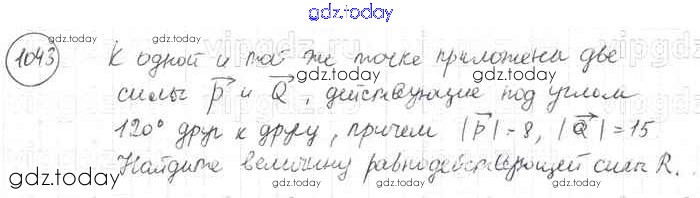 gdz.today
1043 К одной и той же точке приложены две
gdz.today gdz.today
силы P и Q, действующие под углом
gdz.today
120° друг к другу, причем |P| = 8, |Q| = 15
gdz.today gdz.today
Найдите величину равнодействующей силы R.
gdz.today gdz.today